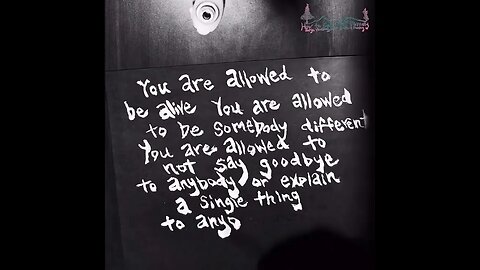 You are allowed to
be alive You are allowed
to be somebody different
You are allowed to
not say goodbye
to anybody or explain
a single thing
to anyb